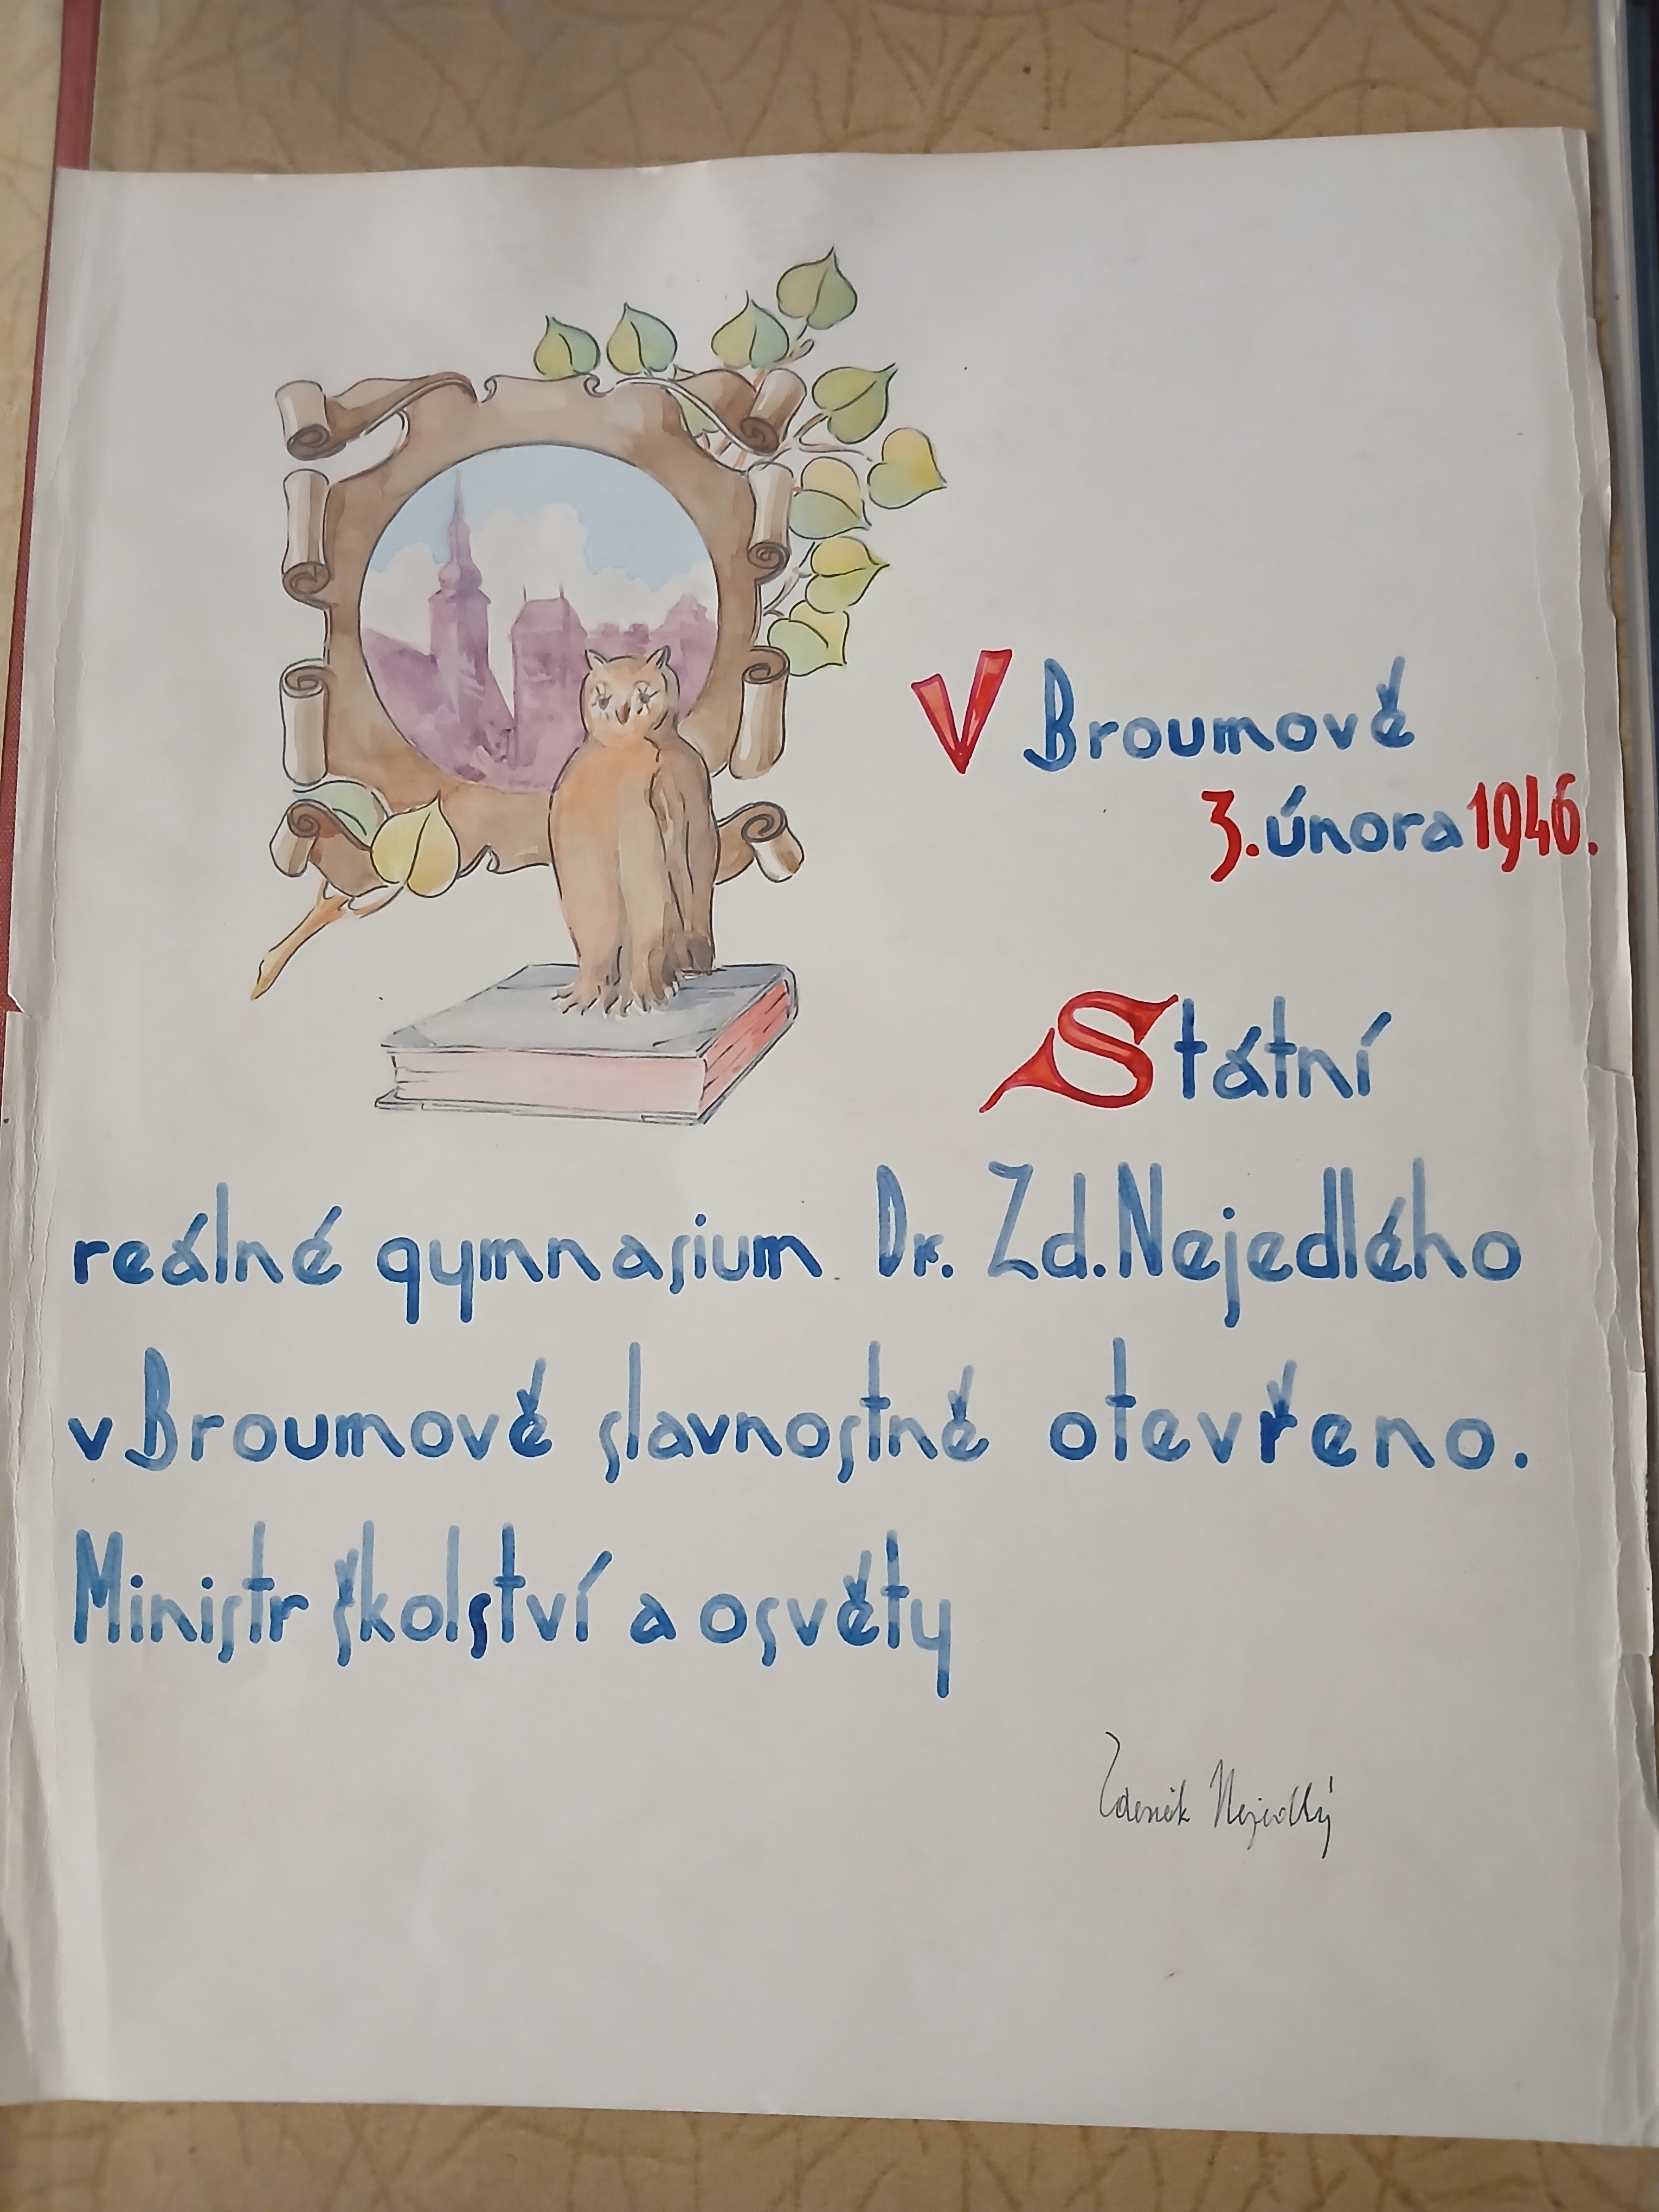 V Broumově
3. února 1946.
Státní
reálné gymnasium Dr. Zd. Nejedlého
v Broumově slavnostně otevřeno.
Ministr školství a osvěty
Zdeněk Nejedlý